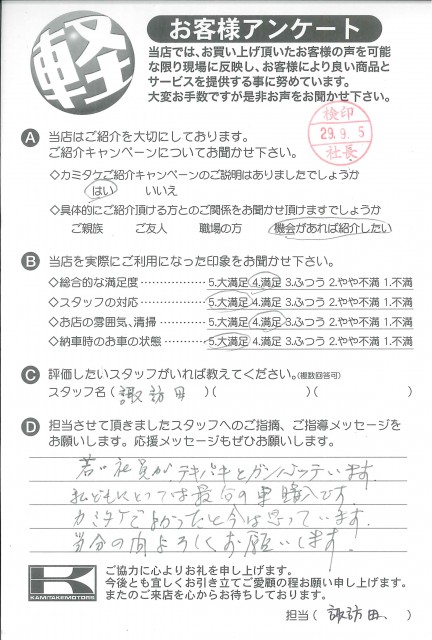 軽
お客様アンケート
当店では、お買い上げ頂いたお客様の声を可能
な限り現場に反映し、お客様により良い商品と
サービスを提供する事に努めています。
大変お手数ですが是非お声をお聞かせ下さい。
検印
29.9.5
社長
A 当店はご紹介を大切にしております。
ご紹介キャンペーンについてお聞かせ下さい。
◇カミタケご紹介キャンペーンのご説明はありましたでしょうか
はい いいえ
◇具体的にご紹介頂ける方とのご関係をお聞かせ頂けますでしょうか
ご親族 ご友人 職場の方 機会があれば紹介したい
B 当店を実際にご利用になった印象をお聞かせ下さい。
◇総合的な満足度 5.大満足 4.満足 3.ふつう 2.やや不満 1.不満
◇スタッフの対応 5.大満足 4.満足 3.ふつう 2.やや不満 1.不満
◇お店の雰囲気、清掃 5.大満足 4.満足 3.ふつう 2.やや不満 1.不満
◇納車時のお車の状態 5.大満足 4.満足 3.ふつう 2.やや不満 1.不満
C 評価したいスタッフがいれば教えてください。(複数回答可)
スタッフ名(諏訪田)( )( )
D 担当させて頂きましたスタッフへのご指摘、ご指導メッセージを
お願いします。応援メッセージもぜひお願いします。
若い社員が、テキパキとガンバッテいます。
私どもにとっては最后の車購入です。
カミタケでよかったと今は思っています。
当分の間よろしくお願いします。
K
KAMITAKEMOTORS
ご協力に心よりお礼を申し上げます。
今後とも宜しくお引き立てご愛顧の程お願い申し上げます。
またのご来店を心からお待ちしております。
担当(諏訪田)